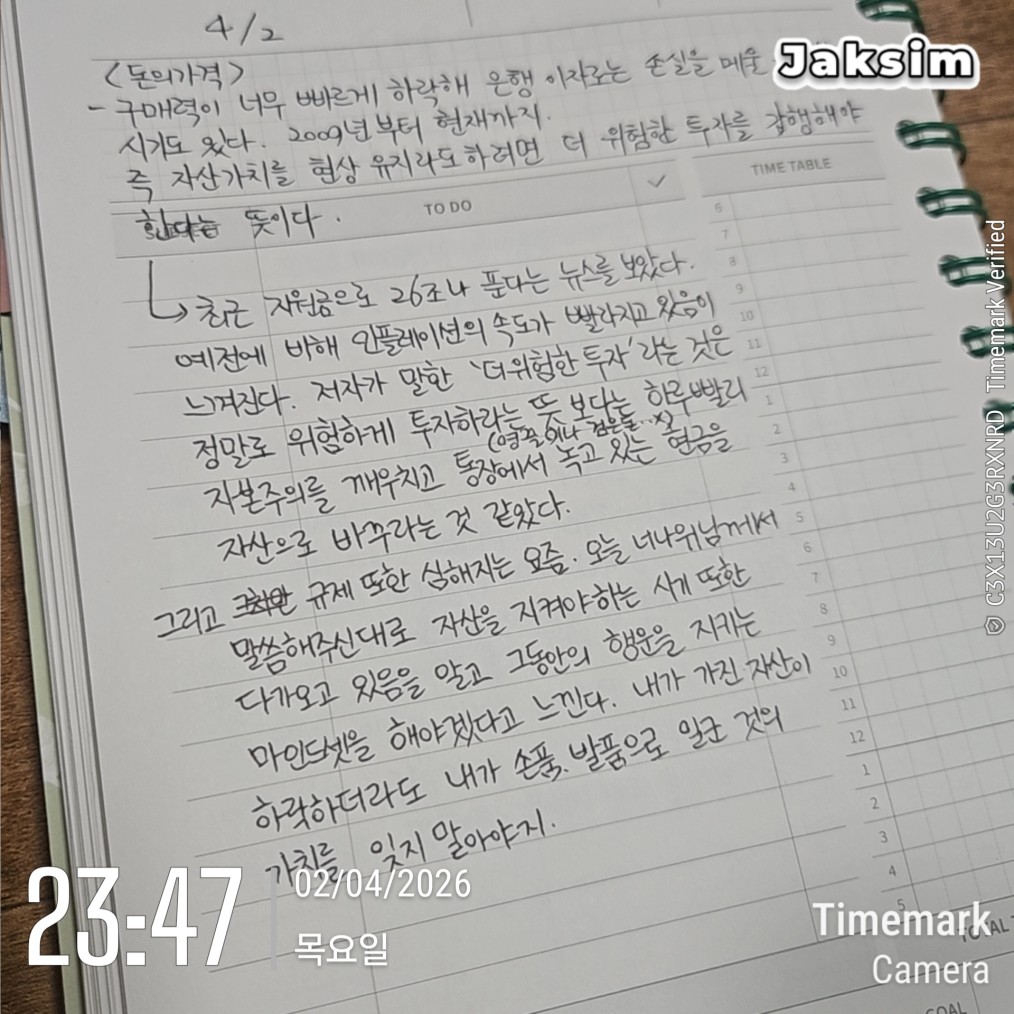 4/2
Jaksim
<돈의가격>
- 구매력이 너무 빠르게 하락해 은행 이자로는 손실을 메울
시기도 있다. 2009년부터 현재까지.
즉 자산가치를 현상 유지라도하려면 더 위험한 투자를 감행해야
한다는 뜻이다.
TO DO
TIME TABLE
↳ 최근 지원금으로 26조나 푼다는 뉴스를 보았다.
예전에 비해 인플레이션의 속도가 빨라지고 있음이
느껴진다. 저자가 말한 '더위험한투자'라는 것은
정말로 위험하게 투자하라는 뜻 보다는 하루빨리
자본주의를 깨우치고 통장에서 녹고 있는 현금을
자산으로 바꾸라는 것 같았다.
그리고 규제 또한 심해지는 요즘. 오늘 너나위님께서
말씀해주신대로 자산을 지켜야하는 시기 또한
다가오고 있음을 알고 그동안의 행운을 지키는
마인드셋을 해야겠다고 느낀다. 내가 가진 자산이
하락하더라도 내가 손품, 발품으로 일군 것의
가치를 잊지 말아야지.
6
7
8
9
10
11
12
1
2
3
4
5
6
7
8
9
10
11
12
1
2
3
4
5
TOTAL
GOAL
23:47
02/04/2026
목요일
Timemark
Camera
C3X13U2G3RXNRD Timemark Verified